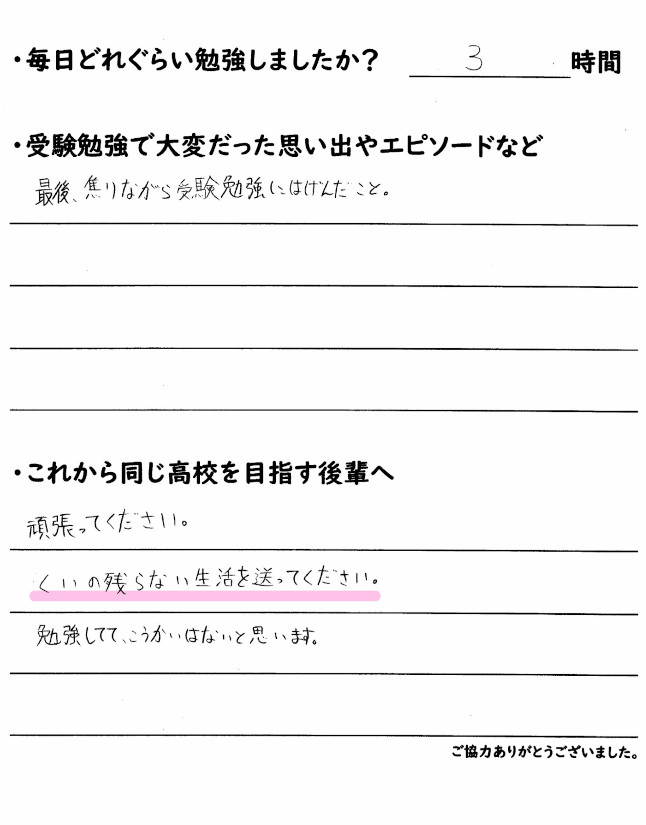 ・毎日どれぐらい勉強しましたか？ 3 時間
・受験勉強で大変だった思い出やエピソードなど
最後、焦りながら受験勉強にはげんだこと。
・これから同じ高校を目指す後輩へ
頑張ってください。
くいの残らない生活を送ってください。
勉強してて、こうかいはないと思います。
ご協力ありがとうございました。